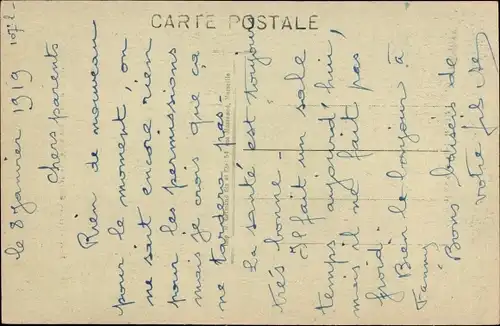 CARTE POSTALE
le 8 Janvier 1919
chers parents
Rien de nouveau
pour le moment, on
ne sait encore rien
pour les permissions
mais je crois que ça
ne tardera pas -
La santé est toujours
très bonne -
Il fait un sale
temps aujourd'hui,
mais il ne fait pas
froid.
Bien le bonjour à
Fanny
Bons baisers de
votre fils